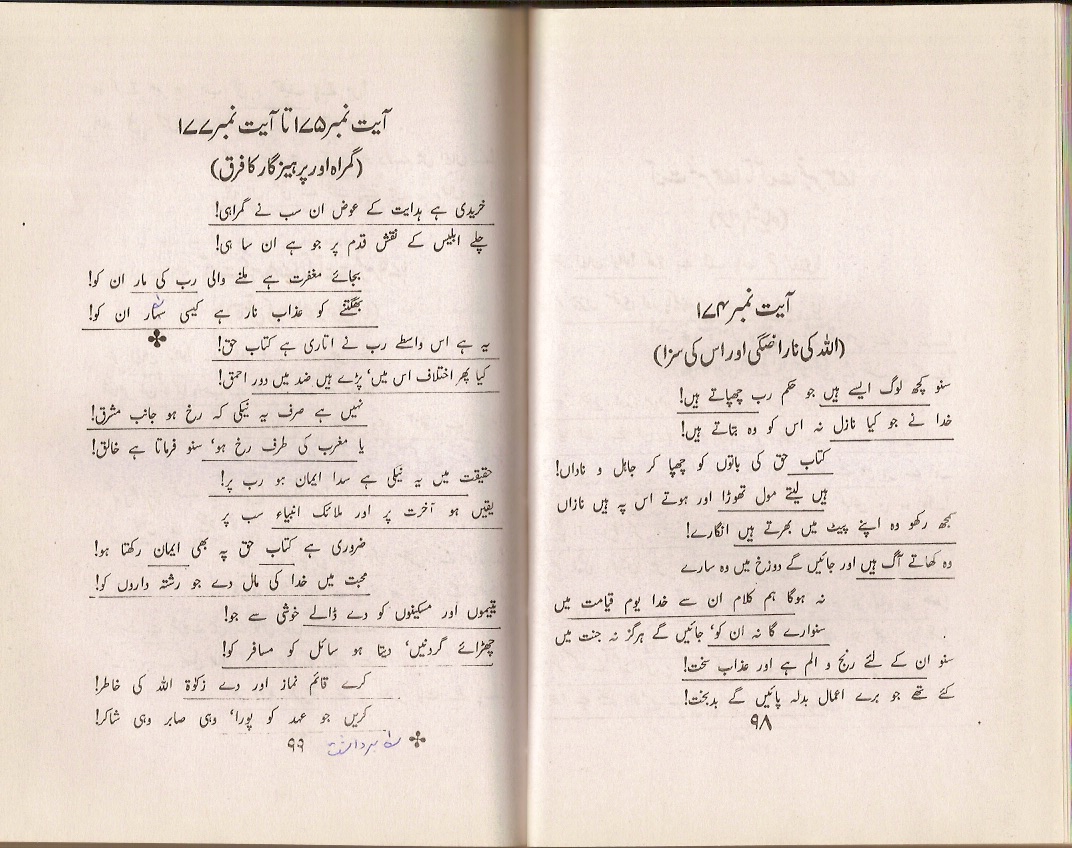 آیت نمبر ۱۷۴
(اللہ کی ناراضگی اور اس کی سزا)
سنو کچھ لوگ ایسے ہیں جو حکم رب چھپاتے ہیں!
خدا نے جو کیا نازل نہ اس کو وہ بتاتے ہیں!
کتاب حق کی باتوں کو چھپا کر جاہل و ناداں!
ہیں لیتے مول تھوڑا اور ہوتے اس پہ ہیں نازاں
سمجھ رکھو وہ اپنے پیٹ میں بھرتے ہیں انگارے!
وہ کھاتے آگ ہیں اور جائیں گے دوزخ میں وہ سارے
نہ ہوگا ہم کلام ان سے خدا یوم قیامت میں
سنوارے گا نہ ان کو، جائیں گے ہرگز نہ جنت میں
سنو ان کے لئے رنج و الم ہے اور عذاب سخت!
کئے تھے جو برے اعمال بدلہ پائیں گے بدبخت!
۹۸
آیت نمبر ۱۷۵ تا آیت نمبر ۱۷۷
(گمراہ اور پرہیزگار کا فرق)
خریدی ہے ہدایت کے عوض ان سب نے گمراہی!
چلے ابلیس کے نقش قدم پر جو ہے ان سا ہی!
بجائے مغفرت ہے ملنے والی رب کی مار ان کو!
بھگتنے کو عذاب نار ہے کیسی سہار ان کو!
یہ ہے اس واسطے رب نے اتاری ہے کتاب حق!
کیا پھر اختلاف اس میں، پڑے ہیں ضد میں دور احمق!
نہیں ہے صرف یہ نیکی کہ رخ ہو جانب مشرق!
یا مغرب کی طرف رخ ہو، سنو فرماتا ہے خالق!
حقیقت میں یہ نیکی ہے سدا ایمان ہو رب پر!
یقیں ہو آخرت پر اور ملائک انبیاء سب پر
ضروری ہے کتاب حق پہ بھی ایمان رکھتا ہو!
محبت میں خدا کی مال دے جو رشتہ داروں کو!
یتیموں اور مسکینوں کو دے ڈالے خوشی سے جو!
چھڑائے گردنیں، دیتا ہو سائل کو مسافر کو!
کرے قائم نماز اور دے زکوٰۃ اللہ کی خاطر!
کریں جو عہد کو پورا، وہی صابر وہی شاکر!
برداشت
۹۹